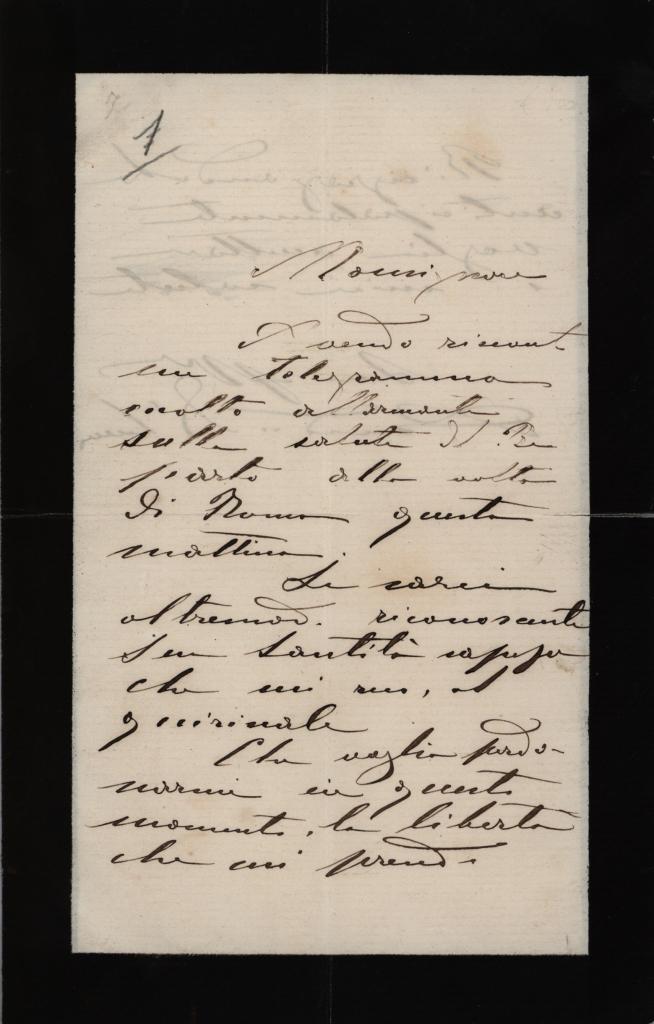 1
Monsignore
Avendo ricevut
un telegramma
molto allarmante
sulla salute del Re
parto alla volta
di Roma questa
mattina.
Le sarei
oltremod. riconoscente
Sua Santità sappia
che mi reco, al
quirinale
Che voglia perdo-
narmi in questo
momento, la libertà
che mi prendo